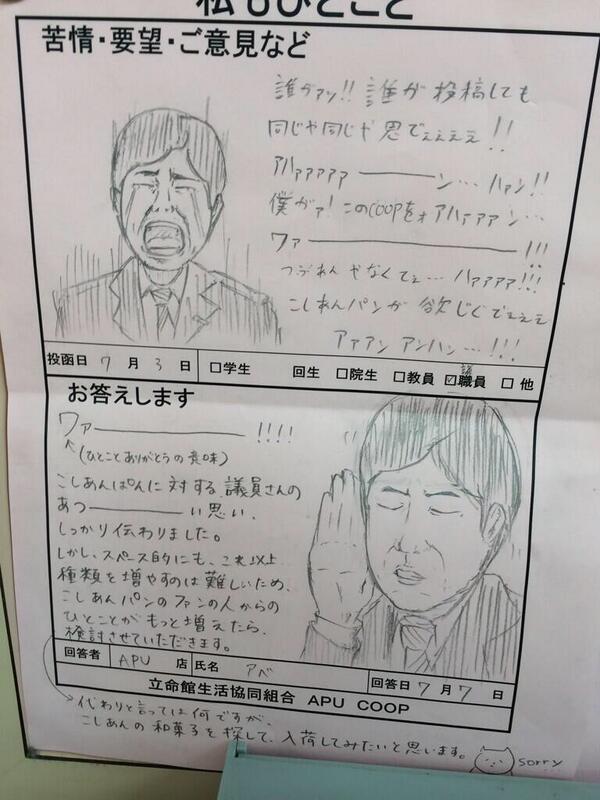 私もひとこと
苦情・要望・ご意見など
誰がァッ!! 誰が投稿しても
同じや同じや思でぇぇぇぇ!!
アハァァァァ―――ン… ハァン!!
僕がァ! このCOOPをォ アハァァァン…
ワァ――――――――!!!
つぶあんやなくてぇ… ハァァァァ!!!
こしあんパンが 欲じぐでぇぇぇ
アァアン アンハン…!!!
投函日 7 月 3 日 □学生 回生 □院生 □教員 ☑職員 □他
議
お答えします
ワァ――――――――!!!!
(ひとことありがとうの意味)
こしあんぱんに対する、議員さんの
あつ――――――い思い、
しっかり伝わりました。
しかし、スペース的にも、これ以上
種類を増やすのは難しいため、
こしあんパンのファンの人からの
ひとことがもっと増えたら、
検討させていただきます。
回答者 APU 店 氏名 アベ 回答日 7 月 7 日
立命館生活協同組合 APU COOP
代わりと言っては何ですが、
こしあんの和菓子を探して、入荷してみたいと思います。
sorry